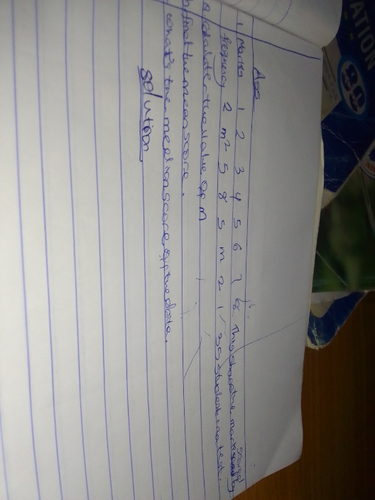 Ans
1. Marks 1 2 3 4 5 6 7 8 This show the mark scored by
frequency 2 m² 5 8 5 m 2 1 35 students in a test.
a, Calculate the value of m
b, find the mean score.
what's the median score of the data.
solution
ATION